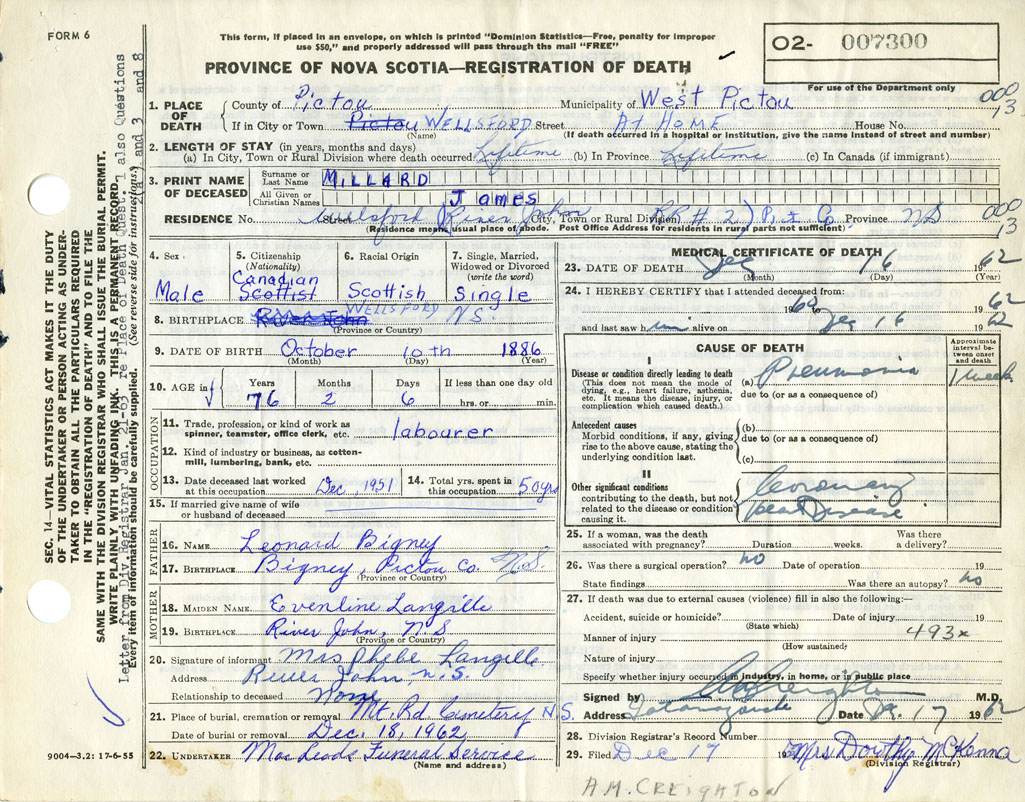 FORM 6
This form, if placed in an envelope, on which is printed "Dominion Statistics—Free, penalty for improper
use $50," and properly addressed will pass through the mail "FREE"
PROVINCE OF NOVA SCOTIA—REGISTRATION OF DEATH
02- 007300
For use of the Department only
000
13
1. PLACE OF DEATH County of Pictou Municipality of West Pictou
If in City or Town Pictou WELLSFORD Street AT HOME House No.
(Name) (If death occurred in a hospital or institution, give the name instead of street and number)
2. LENGTH OF STAY (in years, months and days)
(a) In City, Town or Rural Division where death occurred Lifetime (b) In Province Lifetime (c) In Canada (if immigrant)
3. PRINT NAME OF DECEASED Surname or Last Name MILLARD
All Given or Christian Names James
RESIDENCE No. Welsford Street (River John RR #2) Pictou Co (City, Town or Rural Division) Province NS
(Residence means usual place of abode. Post Office Address for residents in rural parts not sufficient)
000
13
4. Sex Male
5. Citizenship (Nationality) Canadian Scottist
6. Racial Origin Scottish
7. Single, Married, Widowed or Divorced (write the word) Single
8. BIRTHPLACE River John WELLSFORD N.S.
(Province or Country)
9. DATE OF BIRTH October 10th 1886
(Month) (Day) (Year)
10. AGE in Years 76 Months 2 Days 6 If less than one day old hrs. or min.
OCCUPATION
11. Trade, profession, or kind of work as spinner, teamster, office clerk, etc. labourer
12. Kind of industry or business, as cotton-mill, lumbering, bank, etc.
13. Date deceased last worked at this occupation Dec, 1951 14. Total yrs. spent in this occupation 50 yrs
15. If married give name of wife or husband of deceased
FATHER
16. NAME Leonard Bigney
17. BIRTHPLACE Bigney, Pictou Co. N.S.
(Province or Country)
MOTHER
18. MAIDEN NAME Evenline Langille
19. BIRTHPLACE River John, N.S
(Province or Country)
20. Signature of informant Mrs Phebe Langille
Address River John, N.S.
Relationship to deceased None
21. Place of burial, cremation or removal Mt. Rd Cemetery N.S.
Date of burial or removal Dec. 18, 1962
22. UNDERTAKER MacLeods Funeral Service
(Name and address)
MEDICAL CERTIFICATE OF DEATH
23. DATE OF DEATH Dec 16 1962
(Month) (Day) (Year)
24. I HEREBY CERTIFY that I attended deceased from:
1960 to Dec 16 1962
and last saw him alive on 1962
CAUSE OF DEATH
Approximate interval between onset and death
I
Disease or condition directly leading to death
(This does not mean the mode of dying, e.g., heart failure, asthenia, etc. It means the disease, injury, or complication which caused death.)
(a) Pneumonia 1 week
due to (or as a consequence of)
Antecedent causes
Morbid conditions, if any, giving rise to the above cause, stating the underlying condition last.
(b)
due to (or as a consequence of)
(c)
II
Other significant conditions
contributing to the death, but not related to the disease or condition causing it.
Coronary
heart Disease
25. If a woman, was the death associated with pregnancy? Duration weeks. Was there a delivery?
26. Was there a surgical operation? no Date of operation 19
State findings Was there an autopsy? no
27. If death was due to external causes (violence) fill in also the following:—
Accident, suicide or homicide? Date of injury 19
(State which)
493x
Manner of injury
(How sustained)
Nature of injury
Specify whether injury occurred in industry, in home, or in public place
Signed by A M Creighton M.D.
Address Tatamagouche Date Dec. 17 1962
28. Division Registrar's Record Number
29. Filed Dec 17 19 Mrs Dorothy McKenna
(Division Registrar)
A.M. CREIGHTON
SEC. 14—VITAL STATISTICS ACT MAKES IT THE DUTY
OF THE UNDERTAKER OR PERSON ACTING AS UNDER-
TAKER TO OBTAIN ALL THE PARTICULARS REQUIRED
IN THE "REGISTRATION OF DEATH" AND TO FILE THE
SAME WITH THE DIVISION REGISTRAR WHO SHALL ISSUE THE BURIAL PERMIT.
WRITE PLAINLY WITH UNFADING INK. THIS IS A PERMANENT RECORD.
Every item of information should be carefully supplied. (See reverse side for instructions.)
Letter from Div. Registrar Jan. re Place of Death Quest. 1 also Questions
2(a) and 3 and 8
9004—3.2: 17-6-55